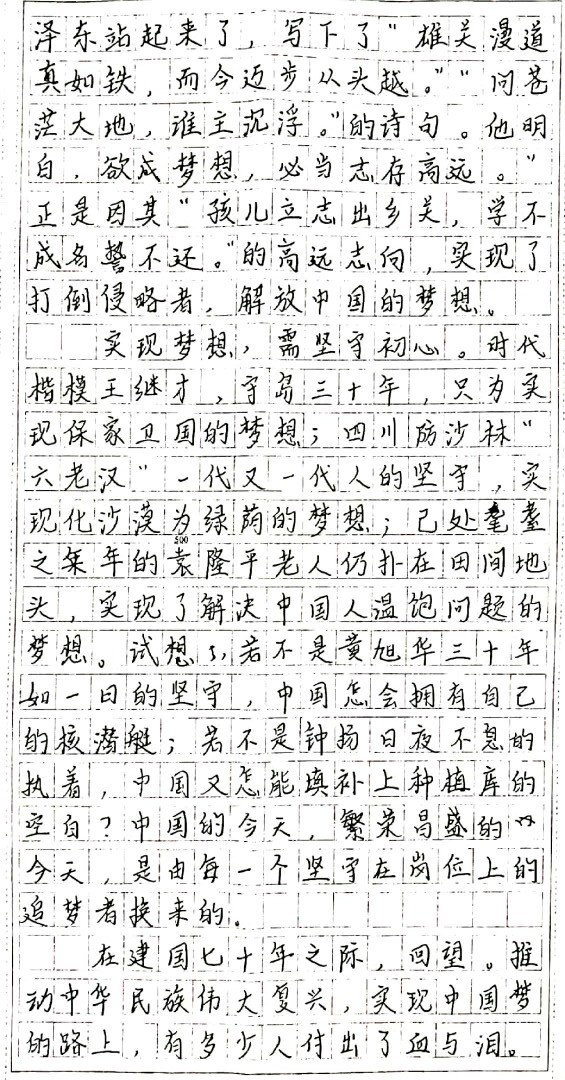 泽东站起来了，写下了“雄关漫道
真如铁，而今迈步从头越。”“问苍
茫大地，谁主沉浮。”的诗句。他明
白，欲成梦想，必当志存高远。”
正是因其“孩儿立志出乡关，学不
成名誓不还。”的高远志向，实现了
打倒侵略者，解放中国的梦想。
实现梦想，需坚守初心。时代
楷模王继才，守岛三十年，只为实
现保家卫国的梦想；四川防沙林“
六老汉”一代又一代人的坚守，实
现化沙漠为绿荫的梦想；已处耄耋
之年的袁隆平老人仍扑在田间地
500
头，实现了解决中国人温饱问题的
梦想。试想，若不是黄旭华三十年
如一日的坚守，中国怎会拥有自己
的核潜艇；若不是钟扬日夜不息的
执着，中国又怎能填补上种植库的
空白？中国的今天，繁荣昌盛的
今天，是由每一个坚守在岗位上的
追梦者换来的。
在建国七十年之际，回望。推
动中华民族伟大复兴，实现中国梦
的路上，有多少人付出了血与泪。